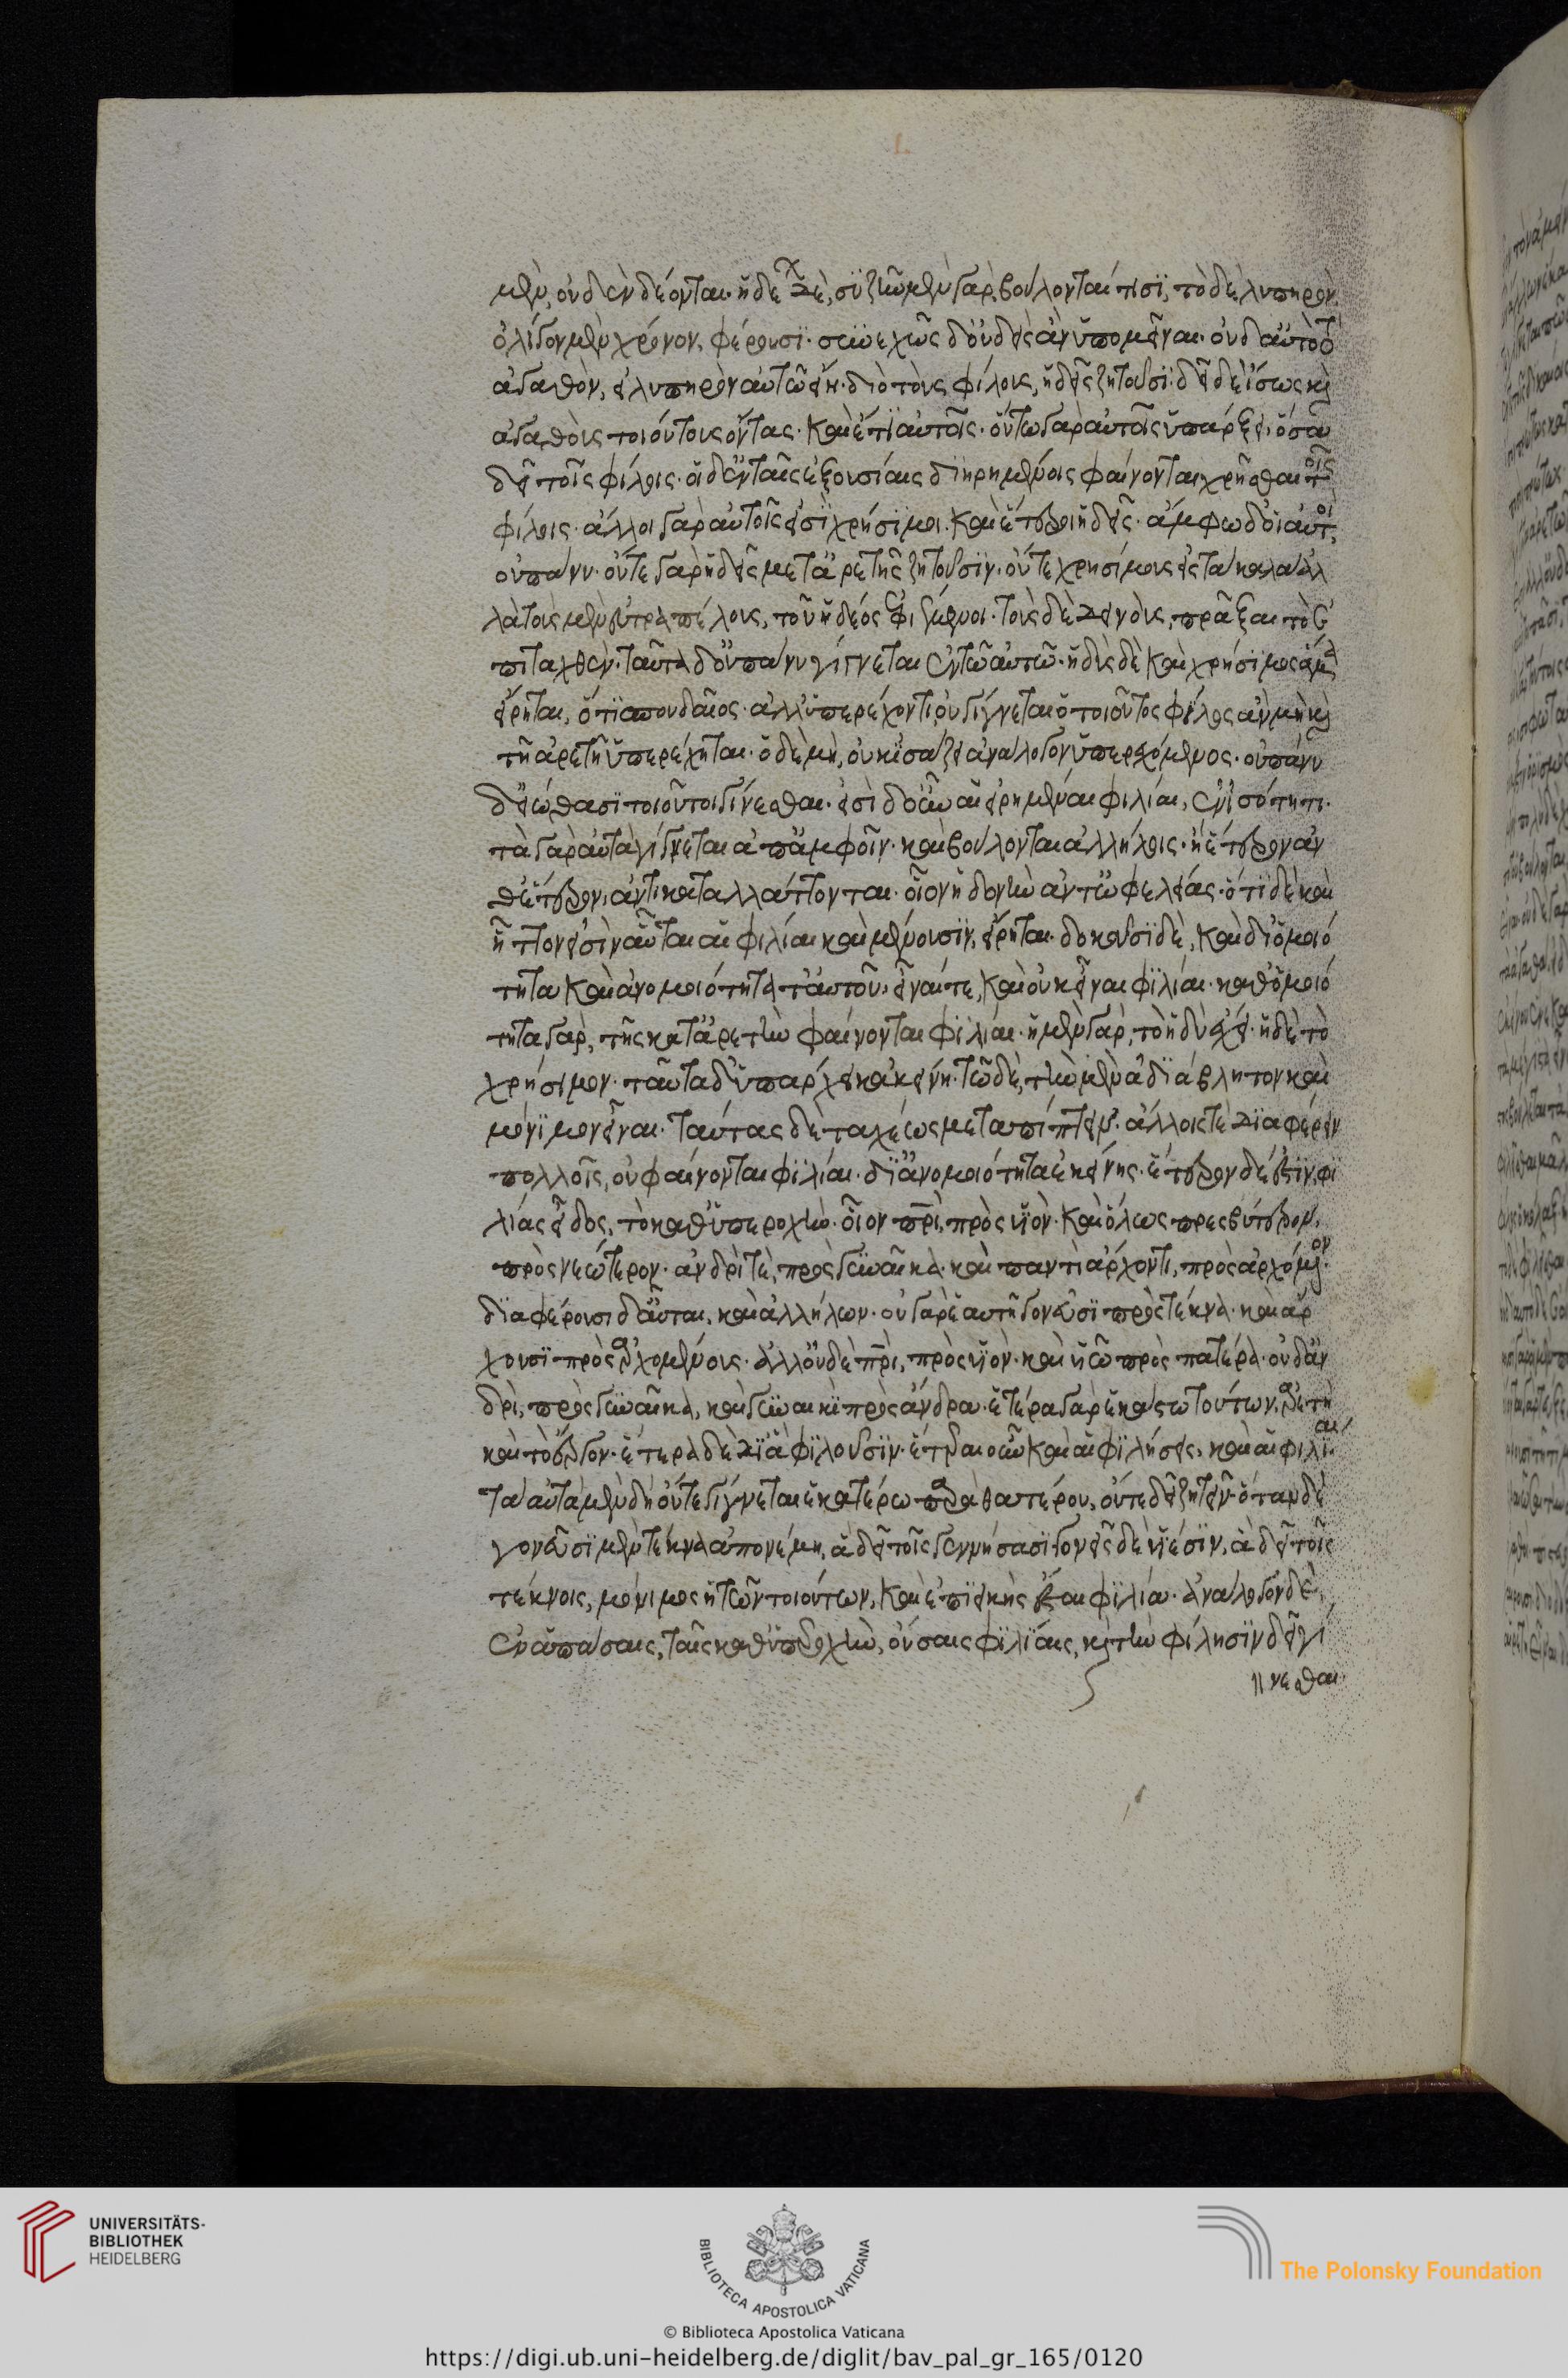 μὲν, οὐδὲν δέονται· ἡδέων δὲ, συζῆν μὲν γὰρ βούλονταί τισϊ, τὸ δὲ λυπηρὸν
ὀλίγον μὲν χρόνον, φέρουσϊ· συνεχῶς δ' οὐδεὶς ἂν ὑπομεῖναι· οὐδ' αὐτὸ τὸ
ἀγαθὸν, εἰ λυπηρὸν αὐτῶ εἴη· διὸ τοὺς φίλους, ἡδεῖς ζητοῦσϊ· δεῖ δὲ ἴσως καὶ
ἀγαθοὺς τοιούτους ὄντας· καὶ ἔτϊ αὐτοῖς· οὕτω γὰρ αὐτοῖς ὑπάρξει, ὅσα
δεῖ τοῖς φίλοις· οἱ δ' ἐν ταῖς ἐξουσίαις διῃρημένοις φαίνονται χρῆσθαι τοῖς
φίλοις· ἄλλοι γὰρ αὐτοῖς εἰσϊ χρήσϊμοι· καὶ ἕτεροι ἡδεῖς· ἄμφω δ' οἱ αὐτοὶ,
οὐ πάνυ· οὔτε γὰρ ἡδεῖς μετ' ἀρετῆς ζητοῦσϊν· οὔτε χρησίμους εἰς τὰ καλὰ ἀλ
λὰ τοὺς μὲν εὐτραπέλους, τοῦ ἡδέος ἐφιέμενοι· τοὺς δὲ δεινοὺς, πρᾶξαι τὸ ἐ
πιταχθέν· ταῦτα δ' οὐ πάνυ γίγνεται ἐν τῶ αὐτῶ· ἡδὺς δὲ καὶ χρήσϊμος ἅμα
εἴρηται, ὅτϊ σπουδαῖος· ἀλλ' ὑπερέχοντι οὐ γίγνεται ὁ τοιοῦτος φίλος ἂν μὴ καὶ
τῆ ἀρετῆ ὑπερέχηται· ὁ δὲ μὴ, οὐκ ἰσάζει ἀνάλογον ὑπερεχόμενος· οὐ πάνυ
δ' εἰώθασϊ τοιοῦτοι γίνεσθαι· εἰσὶ δ' οὖν αἱ εἰρημέναι φιλίαι, ἐν ἰσότητι·
τὰ γὰρ αὐτὰ γίγνεται ἀπ' ἀμφοῖν· καὶ βούλονται ἀλλήλοις· ἢ ἕτερον ἀν
θ' ἑτέρου, ἀντικαταλλάττονται· οἷον ἡδονὴν ἀντ' ὠφελείας· ὅτϊ δὲ καὶ
ἧττον εἰσὶν αὗται αἱ φιλίαι καὶ μένουσϊν, εἴρηται· δοκοῦσϊ δὲ, καὶ δι' ὁμοιό
τητα καὶ ἀνομοιότητα ταὐτοῦ, εἶναί τε, καὶ οὐκ εἶναι φϊλίαι· καθ' ὁμοιό
τητα γὰρ, τῆς κατ' ἀρετὴν φαίνονται φϊλίαι· ἡ μὲν γὰρ, τὸ ἡδὺ ἔχει· ἡ δὲ τὸ
χρήσιμον· ταῦτα δ' ὑπάρχει κἀκείνη· τῶ δὲ, τὴν μὲν ἀδϊάβλητον καὶ
μόνϊμον εἶναι· ταύτας δὲ ταχέως μεταπίπτειν· ἄλλοις τε δϊαφέρειν
πολλοῖς, οὐ φαίνονται φϊλίαι· δϊ' ἀνομοιότητα ἐκείνης· ἕτερον δέ ἐστϊν, φϊ
λίας εἶδος, τὸ καθ' ὑπεροχήν· οἷον πρὶ, πρὸς υἱὸν· καὶ ὅλως πρεσβύτερον,
πρὸς νεώτερον· ἀνδρί τε, πρὸς γυναῖκα· καὶ παντὶ ἄρχοντι, πρὸς ἀρχόμενον·
δϊαφέρουσι δ' αὗται, καὶ ἀλλήλων· οὐ γὰρ ἡ αὐτὴ γονεῦσϊ πρὸς τέκνα· καὶ ἄρ
χουσϊ πρὸς ἀρχομένους· ἀλλ' οὐδὲ πρὶ, πρὸς υἱὸν· καὶ υἱῶ πρὸς πατέρα· οὐδ' ἀν
δρὶ, πρὸς γυναῖκα, καὶ γυναικὶ πρὸς ἄνδρα· ἑτέρα γὰρ ἑκάστω τούτων, ἀρετὴ
καὶ τὸ ἔργον· ἕτερα δὲ δϊ' ἃ φϊλοῦσϊν· ἕτεραι οὖν καὶ αἱ φϊλήσεις, καὶ αἱ φιλίαι·
ταὐτὰ μὲν δὴ οὔτε γίγνεται ἑκατέρω παρὰ θατέρου, οὔτε δεῖ ζητεῖν· ὅταν δὲ
γονεῦσϊ μὲν τέκνα ἀπονέμη, ἃ δεῖ τοῖς γεννήσασϊ· γονεῖς δὲ υἱέσϊν, ἃ δεῖ τοῖς
τέκνοις, μόνιμος ἡ τῶν τοιούτων, καὶ ἐπϊεικὴς ἔσται φϊλία· ἀνάλογον δὲ,
ἐν ἁπάσαις, ταῖς καθ' ὑπεροχὴν, οὔσαις φϊλίαις, καὶ τὴν φίλησϊν δεῖ γί
νεσθαι
UNIVERSITÄTS-
BIBLIOTHEK
HEIDELBERG
BIBLIOTECA APOSTOLICA VATICANA
© Biblioteca Apostolica Vaticana
The Polonsky Foundation
https://digi.ub.uni-heidelberg.de/diglit/bav_pal_gr_165/0120